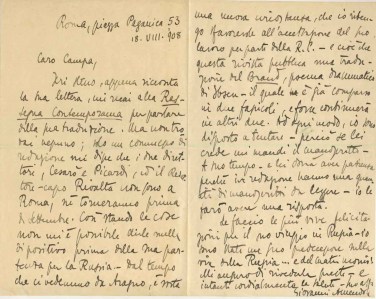 Roma, piazza Paganica 53
18. VIII. 908
Caro Campa,
Ieri stesso, appena ricevuta
la sua lettera, mi recai alla Ras-
segna Contemporanea per parlare
della sua traduzione. Ma non tro-
vai nessuno; solo un commesso di
redazione mi disse che i due diret-
tori, Cesarò e Picardi, ed il Redat-
tore-capo Rivalta non sono a
Roma, né torneranno prima
di settembre. Così stando le cose
non mi è possibile dirle nulla
di positivo prima della sua par-
tenza per la Russia. Dal tempo
che ci vedemmo da Aragno, è sorta
una nuova circostanza, che io riten-
go sfavorevole all'accettazione del suo
lavoro per parte della R.C. - e cioè che
questa rivista pubblica una tradu-
zione del Brand, poema drammatico
di Ibsen - il quale ne è già comparso
in due fascicoli, e forse continuerà
in altri due. Ad ogni modo, io sono
disposto a tutto - perciò se lei
crede mi mandi il manoscritto -
A suo tempo - e lei dovrà aver pazienza
perché in redazione hanno una quan-
tità di manoscritti da leggere - io le
farò avere una risposta.
Le faccio le più vive felicita-
zioni per il suo viaggio in Russia - io
sono stato un po'
della Russia
Mi auguro di rivederla presto - e
intanto cordialmente la saluto - suo aff.
Giovanni Amendola